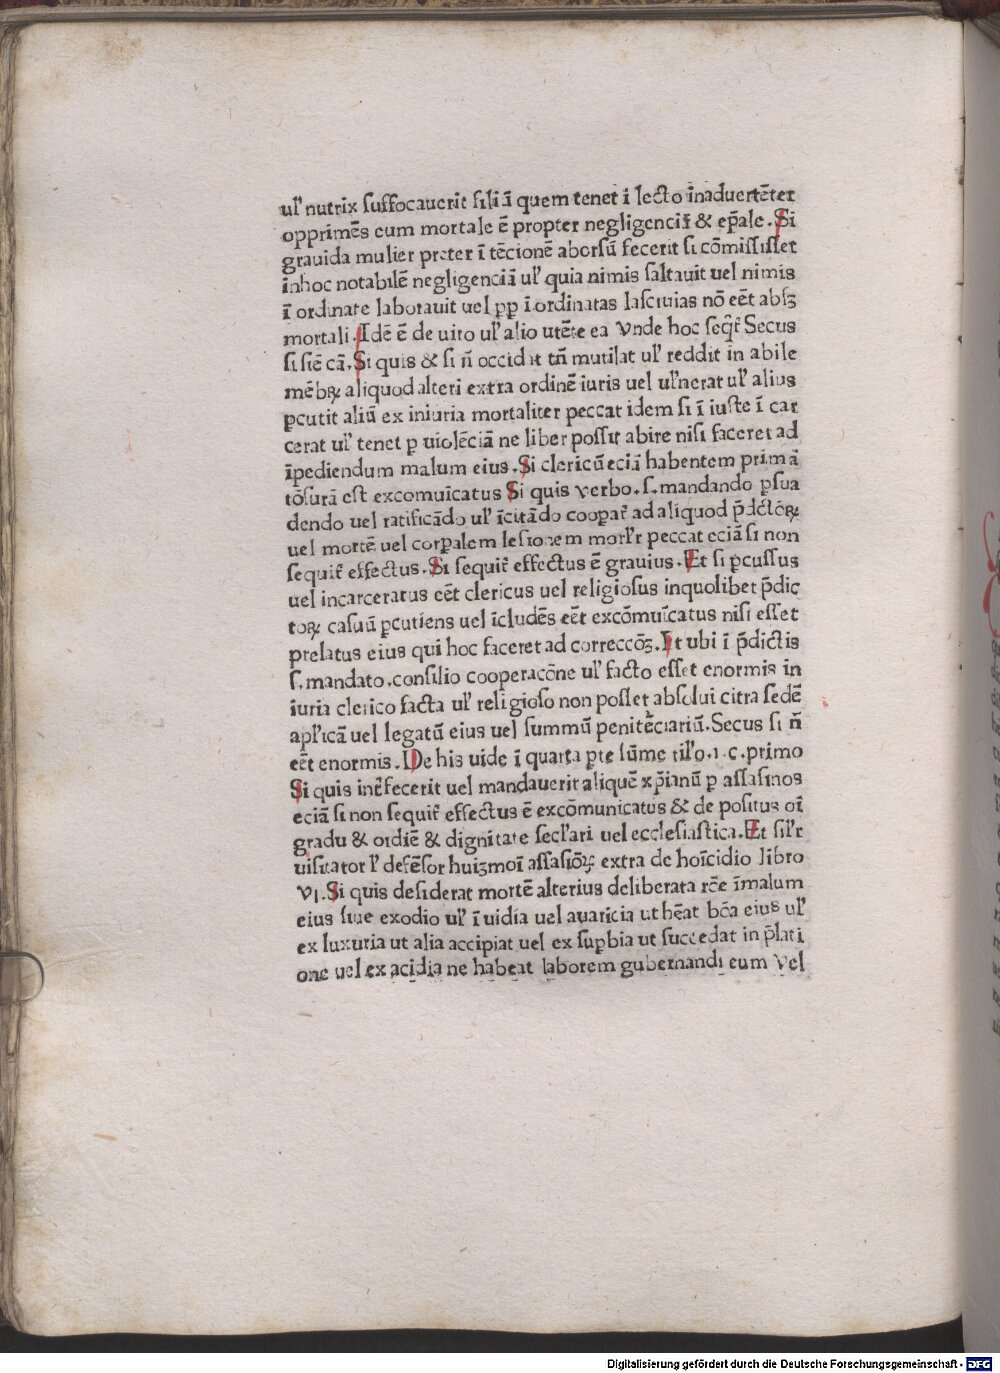 ul' nutrix suffocauerit filiā quem tenet ī lecto īnaduertēter
opprimēs eum mortale ē propter negligenciā & ep̄ale. Si
grauida mulier preter ī tēcionē aborsū fecerit si cōmisisset
inhoc notabilē negligenciā ul' quia nimis saltauit uel nimis
ī ordinate laborauit uel pp̄ īordinatas lasciuias nō eēt absꝫ
mortali. Idē ē de uiro ul' alio utēte ea Vnde hoc seqr̄ Secus
si siē cā. Si quis & si n̄ occidit tn̄ mutilat ul' reddit in abile
mēbꝝ aliquod alteri extra ordinē iuris uel ul'nerat ul' alius
ꝑcutit aliū ex iniuria mortaliter peccat idem si ī iuste ī car
cerat ul' tenet ꝑ uiolēciā ne liber possit abire nisi faceret ad
īpediendum malum eius. Si clericū eciā habentem primā
tōsurā est excomuīcatus Si quis verbo. s. mandando ꝑsua
dendo uel ratificādo ul' īcitādo cooꝑat̄ ad aliquod p̄dictōꝝ
uel mortē uel corꝑalem lesionem morl'r peccat eciā si non
sequit̄ effectus. Si sequit̄ effectus ē grauius. Et si ꝑcussus
uel incarceratus eēt clericus uel religiosus inquolibet p̄dic
toꝝ casuū ꝑcutiens uel īcludēs eēt excōmuīcatus nisi esset
prelatus eius qui hoc faceret ad correccōꝫ. Et ubi ī p̄dictis
s. mandato. consilio cooperacōne ul' facto esset enormis in
iuria clerico facta ul' religioso non posset absolui citra sedē
apl'icā uel legatū eius uel summū penitēciariū. Secus si n̄
eēt enormis. De his uide ī quarta ꝑte sūme til'o. 1. c. primo
Si quis int̄fecerit uel mandauerit aliquē xp̄ianū ꝑ assasinos
eciā si non sequit̄ effectus ē excōmunicatus & de positus oī
gradu & ordīe & dignitate secl'ari uel ecclesiastica. Et sil'r
uisitator l' defēsor huiꝫmoī assasiōꝝ extra de hoīcidio libro
VI. Si quis desiderat mortē alterius deliberata rc̄e īmalum
eius siue exodio ul' ī uidia uel auaricia ut hēat bōa eius ul'
ex luxuria ut alia accipiat uel ex suꝑbia ut succedat in p̄lati
one uel ex acidia ne habeat laborem gubernandi eum Vel
Digitalisierung gefördert durch die Deutsche Forschungsgemeinschaft - DFG